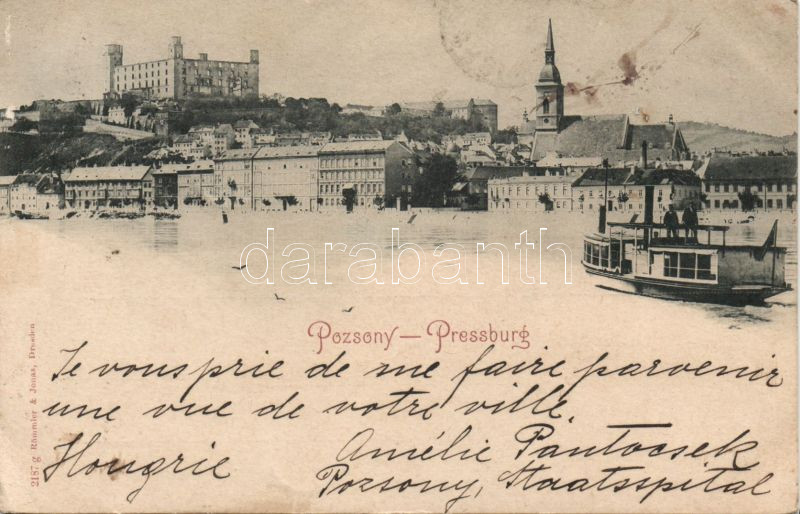 darabanth.com
Pozsony — Pressburg
Je vous prie de me faire parvenir
une vue de votre ville
Hongrie
Amélie Pantocsek
Pozsony, Staatsspital
2187 g Römmler & Jonas, Dresden